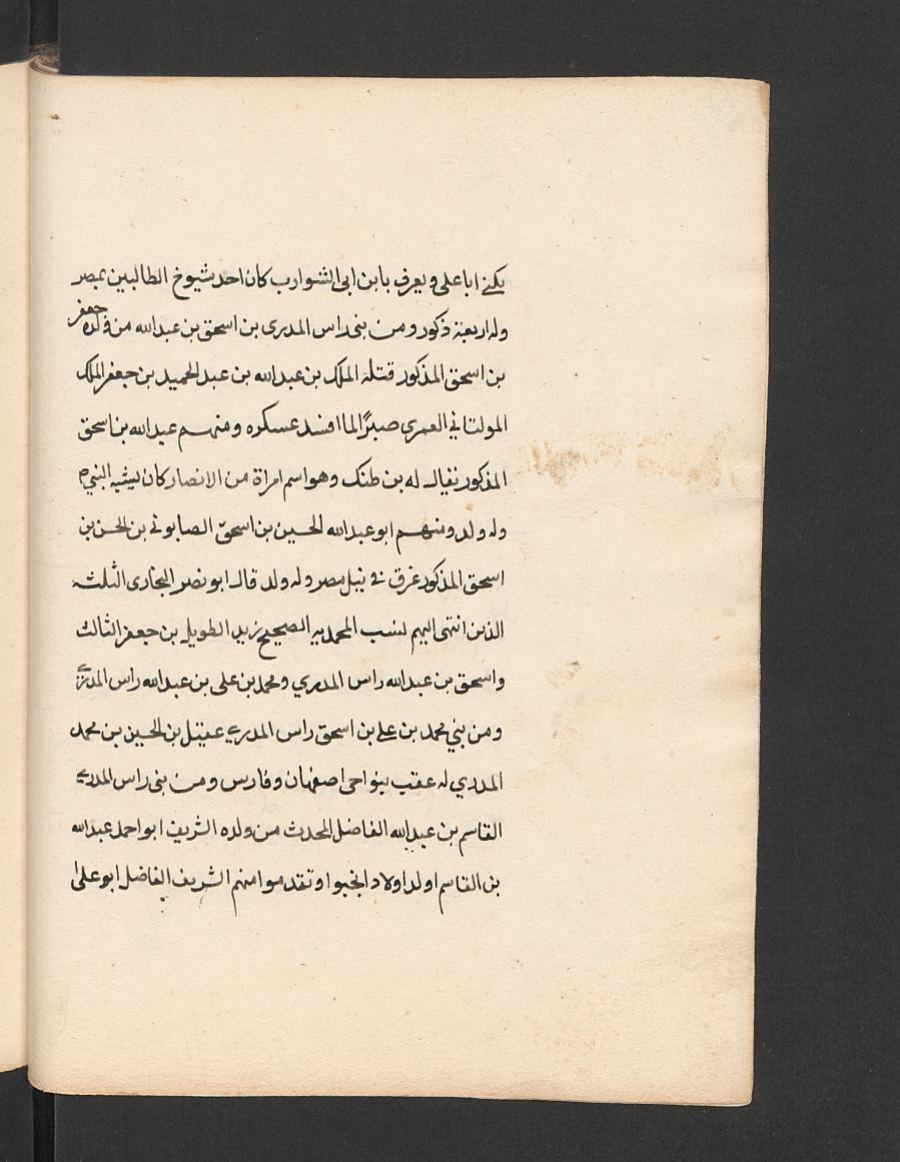 يكنى ابا على ويعرف بابن ابى الشوارب كان احد شيوخ الطالبين بمصر
وله اربعة ذكور ومن بنى راس المدرى بن اسحق بن عبدالله من ولده جعفر
بن اسحق المذكور قتله الملك بن عبدالله بن عبد الحميد بن جعفر الملك
المولتاني العمرى صبرًا لما افسد عسكره ومنهم عبدالله بن اسحق
المذكور نقيال له بن طنك وهو اسم امراة من الانصار كان يشبه النبي ص
وله ولد ومنهم ابو عبدالله الحسين بن اسحق الصابونى بن الحسن بن
اسحق المذكور غرق فى نيل مصر وله ولد قال ابو نصر البخارى الثلثة
الذين انتهى اليهم نسب المحمديه الصحيح زيد الطويل بن جعفر الثالث
واسحق بن عبدالله راس المدري ومحمد بن على بن عبدالله راس المدري
ومن بني محمد بن على بن اسحق راس المدري عقيل بن الحسين بن محمد
المدري له عقب بنواحى اصفهان وفارس ومن بنى راس المدري
القاسم بن عبدالله الفاضل المحدث من ولده الشريف ابو احمد عبدالله
بن القاسم اولد اولاد انجبوا وتقدموا منهم الشريف الفاضل ابو على